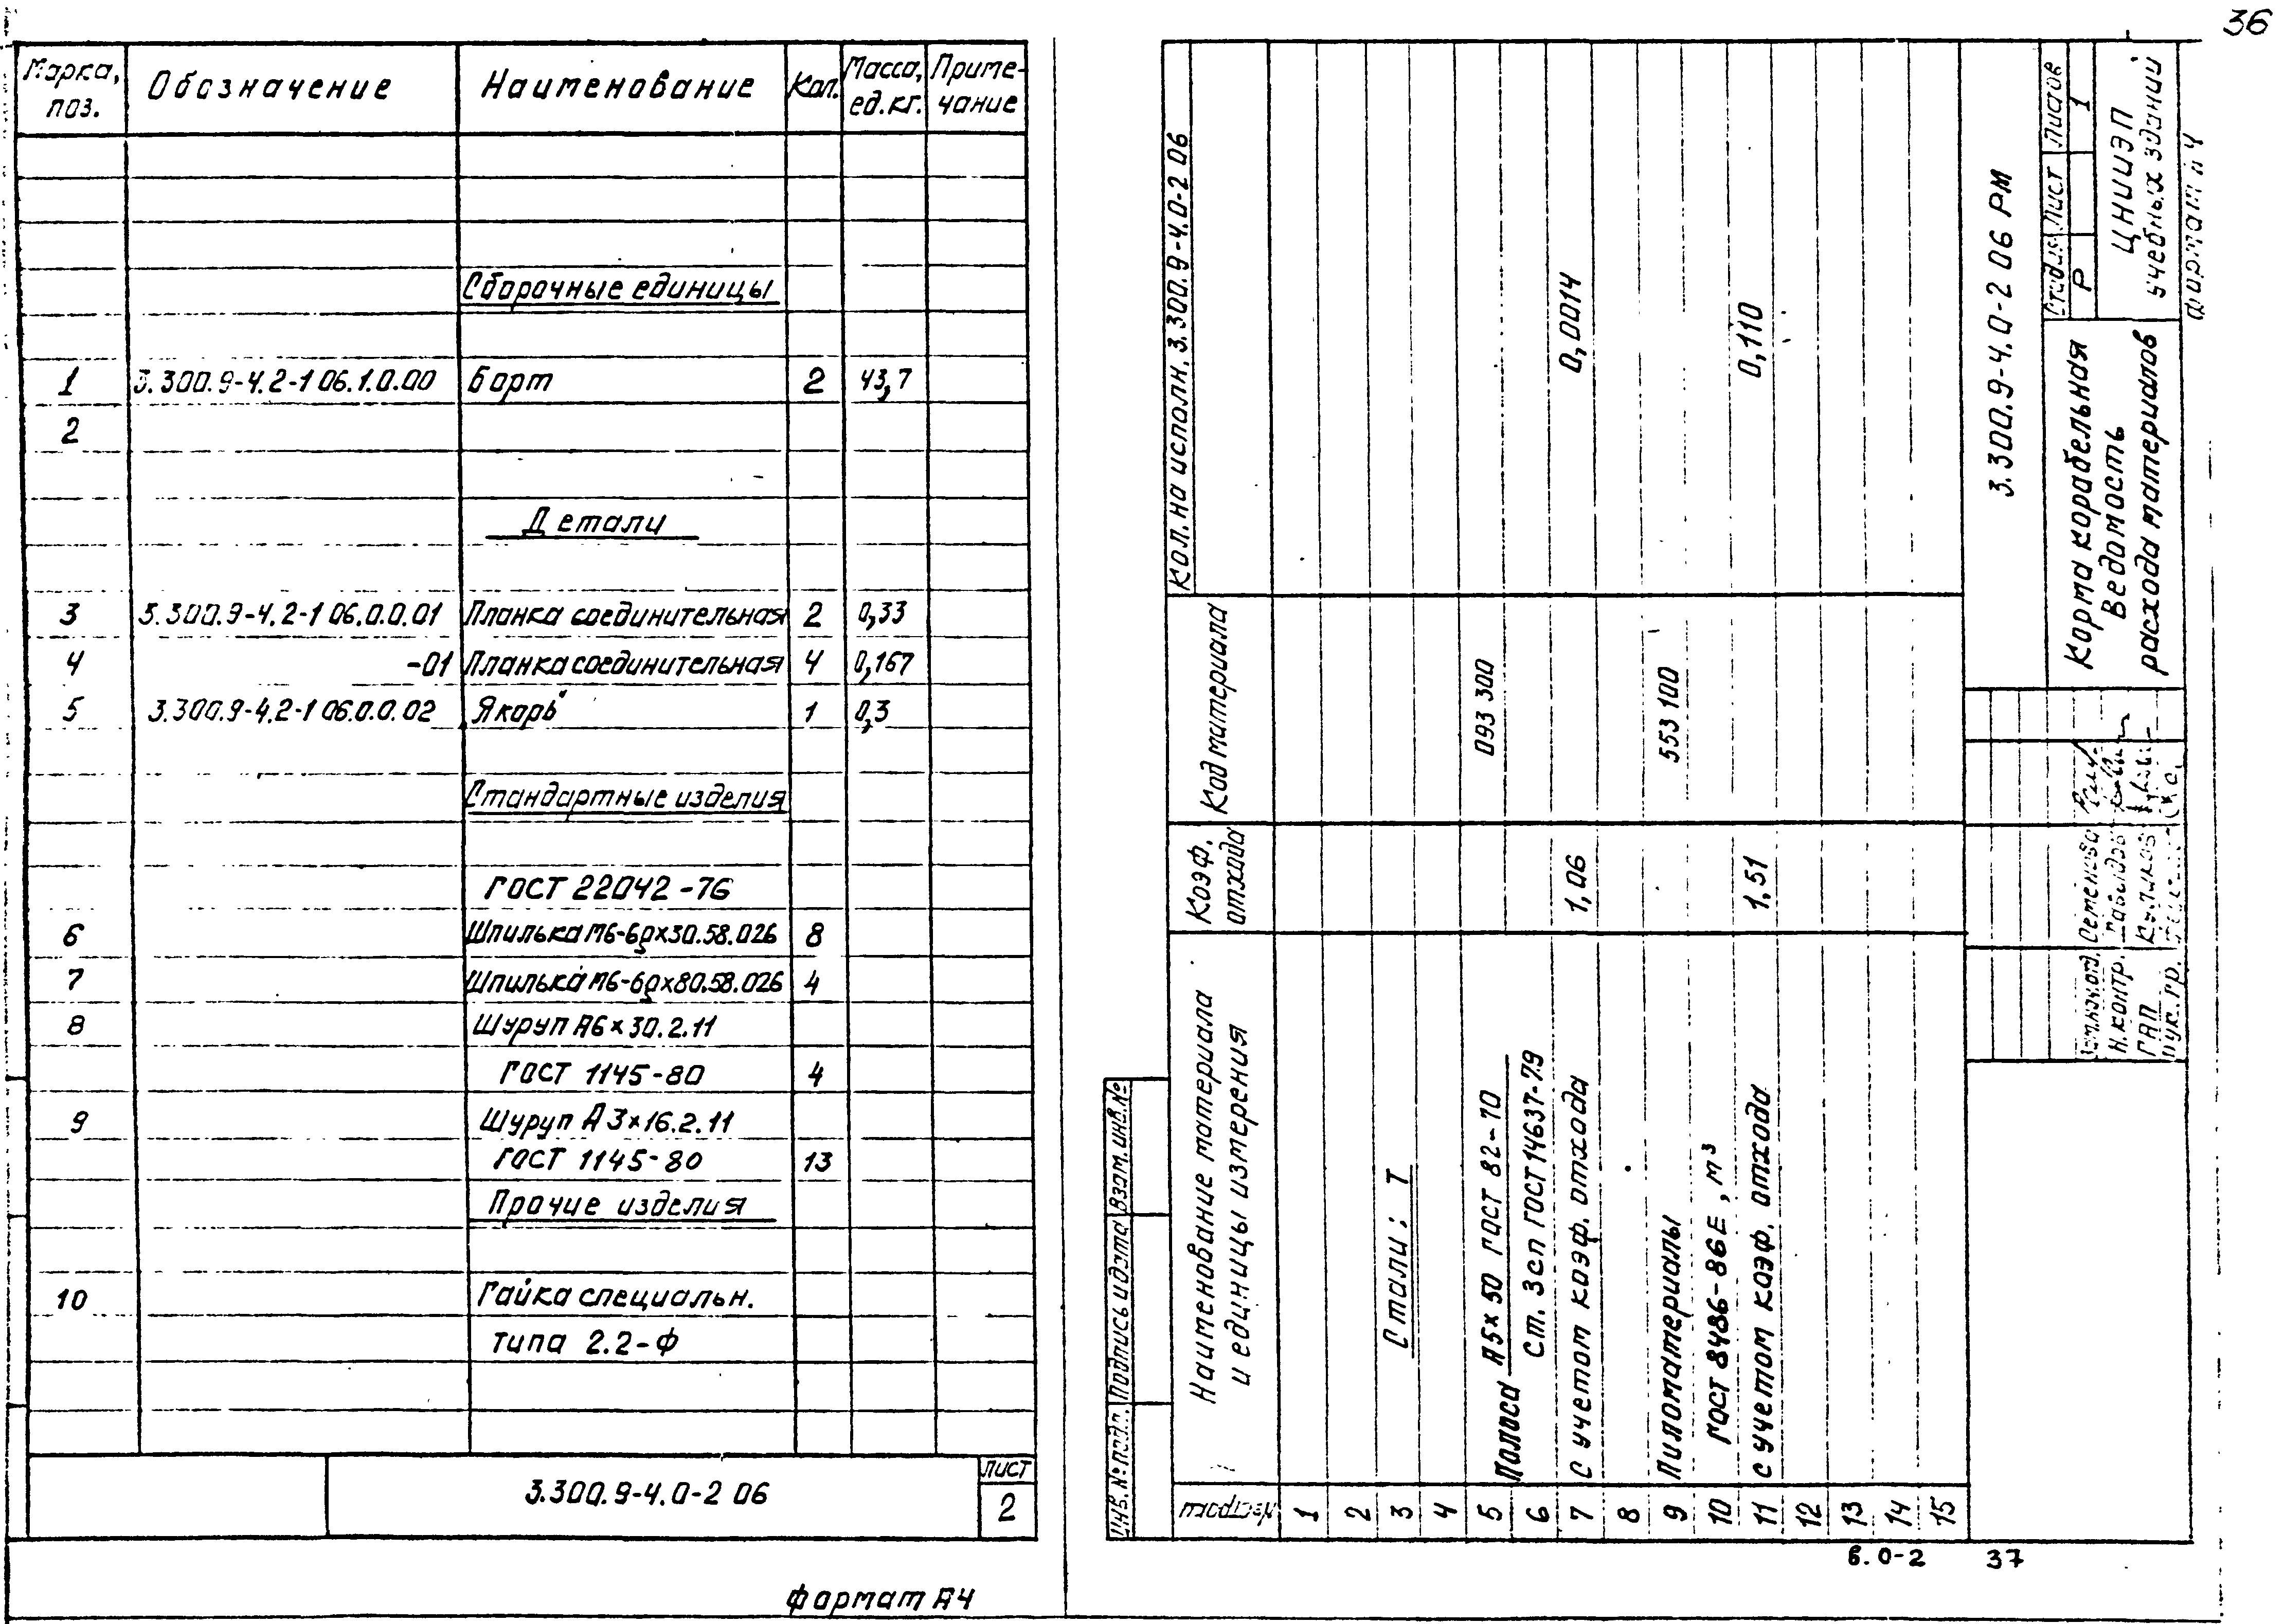 36
Марка, поз. Обозначение Наименование Кол. Масса, ед.кг. Приме-чание
Сборочные единицы
1 3.300.9-4.2-1 06.1.0.00 Борт 2 43,7
2
Детали
3 3.300.9-4.2-1 06.0.0.01 Планка соединительная 2 0,33
4 -01 Планка соединительная 4 0,167
5 3.300.9-4.2-1 06.0.0.02 Якорь 1 0,3
Стандартные изделия
ГОСТ 22042-76
6 Шпилька М6-6gх30.58.026 8
7 Шпилька М6-6gх80.58.026 4
8 Шуруп А6х30.2.11
ГОСТ 1145-80 4
9 Шуруп А3х16.2.11
ГОСТ 1145-80 13
Прочие изделия
10 Гайка специальн.
типа 2.2-Ф
3.300.9-4.0-2 06
Лист
2
формат А4
№ строки
Наименование материала
и единицы измерения
Коэф.
отхода
Код материала
Кол. на исполн. 3.300.9-4.0-2 06
1
2
3 Стали: Т
4
5 Полоса А5х50 ГОСТ 82-70 093 300
6 Ст. 3сп ГОСТ 14637-79
7 С учетом коэф. отхода 1,06 0,0014
8
9 Пиломатериалы 553 100
10 ГОСТ 8486-86Е, м³
11 С учетом коэф. отхода 1,51 0,110
12
13
14
15
Инв. № подл. Подпись и дата Взам. инв. №
3.300.9-4.0-2 06 РМ
Семенова
Н.контр.
ГАП
Рук. гр.
Карта корабельная
Ведомость
расхода материалов
Стадия Лист Листов
Р 1
ЦНИИЭП
учебных зданий
формат А4
в. 0-2 37